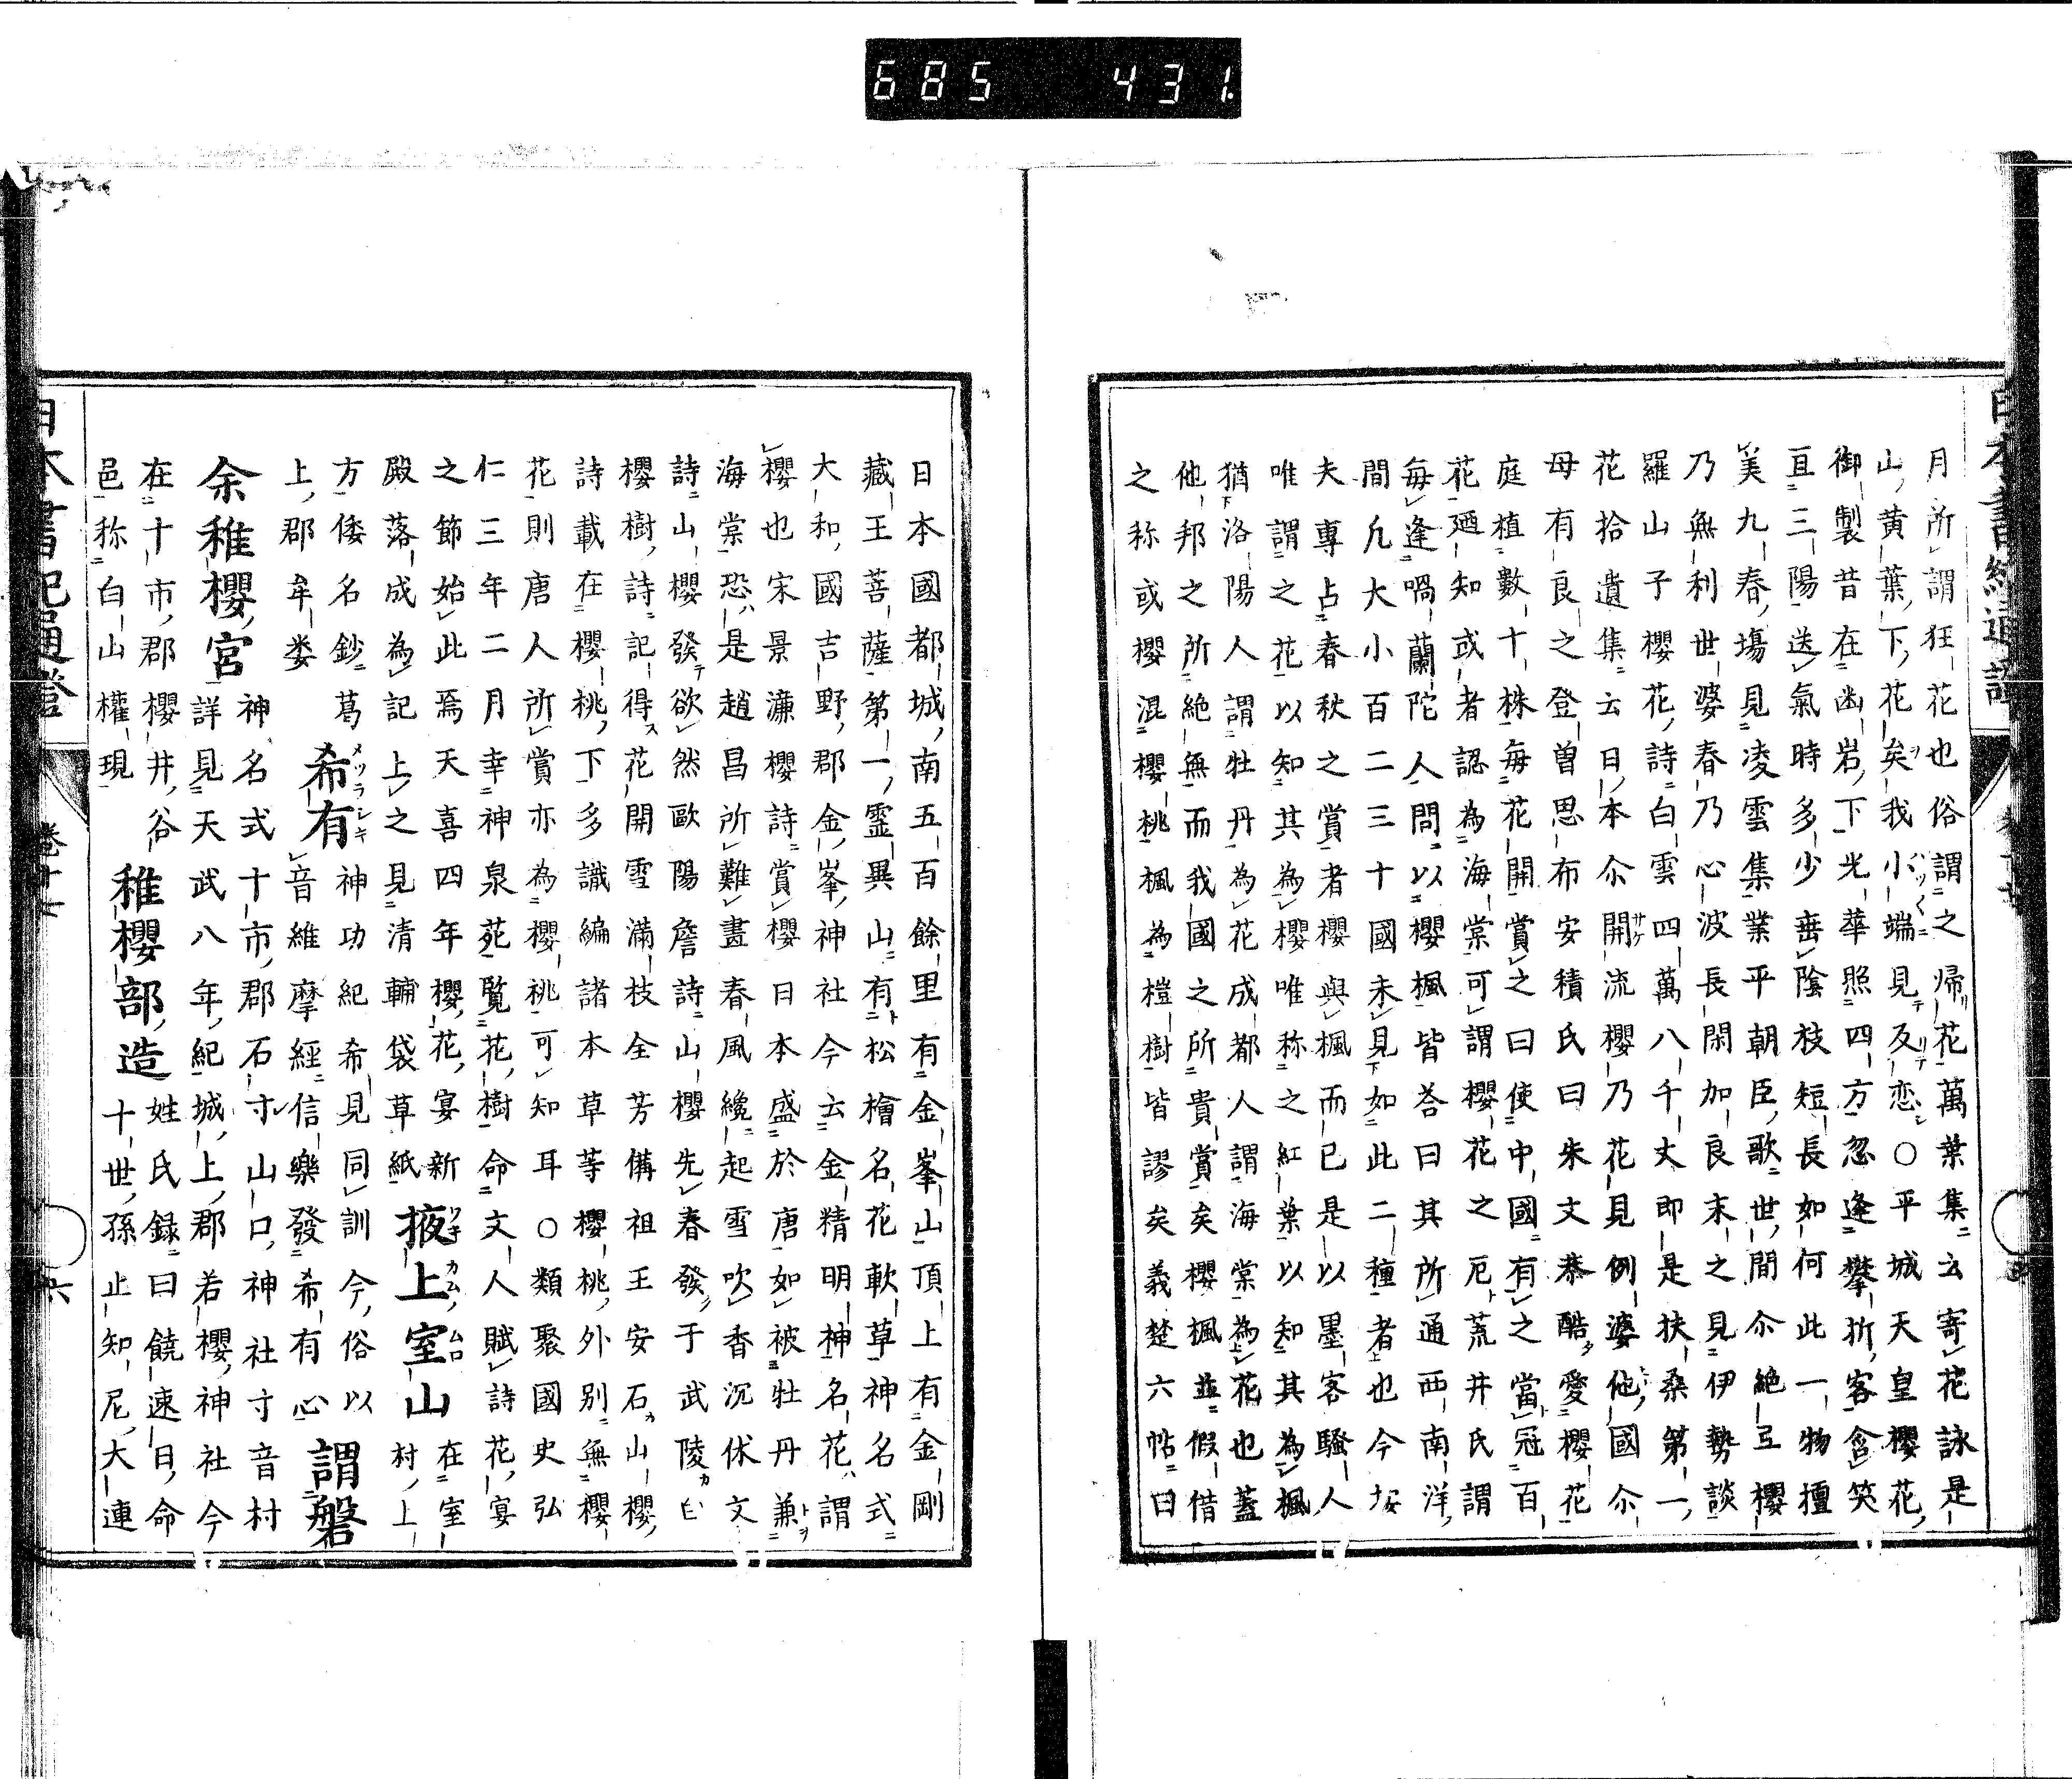 685 431
月所謂狂花也俗謂之帰花萬葉集云寄花詠是
山黄葉下花矣我小端見反恋○平城天皇櫻花
御製昔在幽岩下光華照四方忽逢攀折客含笑
亘三陽送氣時多少垂陰枝短長如何此一物擅
美九春場見凌雲集業平朝臣歌世間尒絶互櫻
乃無利世婆春乃心波長閑加良末之見伊勢談
羅山子櫻花詩白雲四萬八千丈即是扶桑第一
花拾遺集云日本尒開流櫻乃花見例婆他國尒
母有良之登曽思布安積氏曰朱文恭酷愛櫻花
庭植數十株毎花開賞之曰使中國有之當冠百
花廼知或者認為海棠可謂櫻花之厄荒井氏謂
毎逢喎蘭陀人問以櫻楓皆荅曰其所通西南洋
間凡大小百二三十國未見如此二種者也今按
夫專占春秋之賞者櫻與楓而已是以墨客騷人
唯謂之花以知其為櫻唯称之紅葉以知其為楓
猶洛陽人謂牡丹為花成都人謂海棠為花也蓋
他邦之所絶無而我國之所貴賞矣櫻楓並假借
之称或櫻混櫻桃楓為榿樹皆謬矣義楚六帖曰
日本國都城南五百餘里有金峯山頂上有金剛
藏王菩薩第一霊異山有松檜名花軟草神名式
大和國吉野郡金峯神社今云金精明神名花謂
櫻也宋景濂櫻詩賞櫻日本盛於唐如被牡丹兼
海棠恐是趙昌所難畫春風纔起雪吹香沉休文
詩山櫻發欲然歐陽詹詩山櫻先春發于武陵
櫻樹詩記得花開雪滿枝全芳備祖王安石山櫻
詩載在櫻桃下多識編諸本草等櫻桃外別無櫻
花則唐人所賞亦為櫻桃可知耳○類聚國史弘
仁三年二月幸神泉苑覧花樹命文人賦詩花宴
之節始此焉天喜四年櫻花宴新
殿落成為記上之見清輔袋草紙 掖上室山 在室村上
方倭名鈔葛
上郡牟婁 希有 神功紀希見同訓今俗以音維摩經信樂發希有心 謂磐
余稚櫻宮 神名式十市郡石寸山口神社寸音村
詳見天武八年紀城上郡若櫻神社今
在十市郡櫻井谷 稚櫻部造 姓氏録曰饒速日命
邑称白山權現 十世孫止知尼大連
六